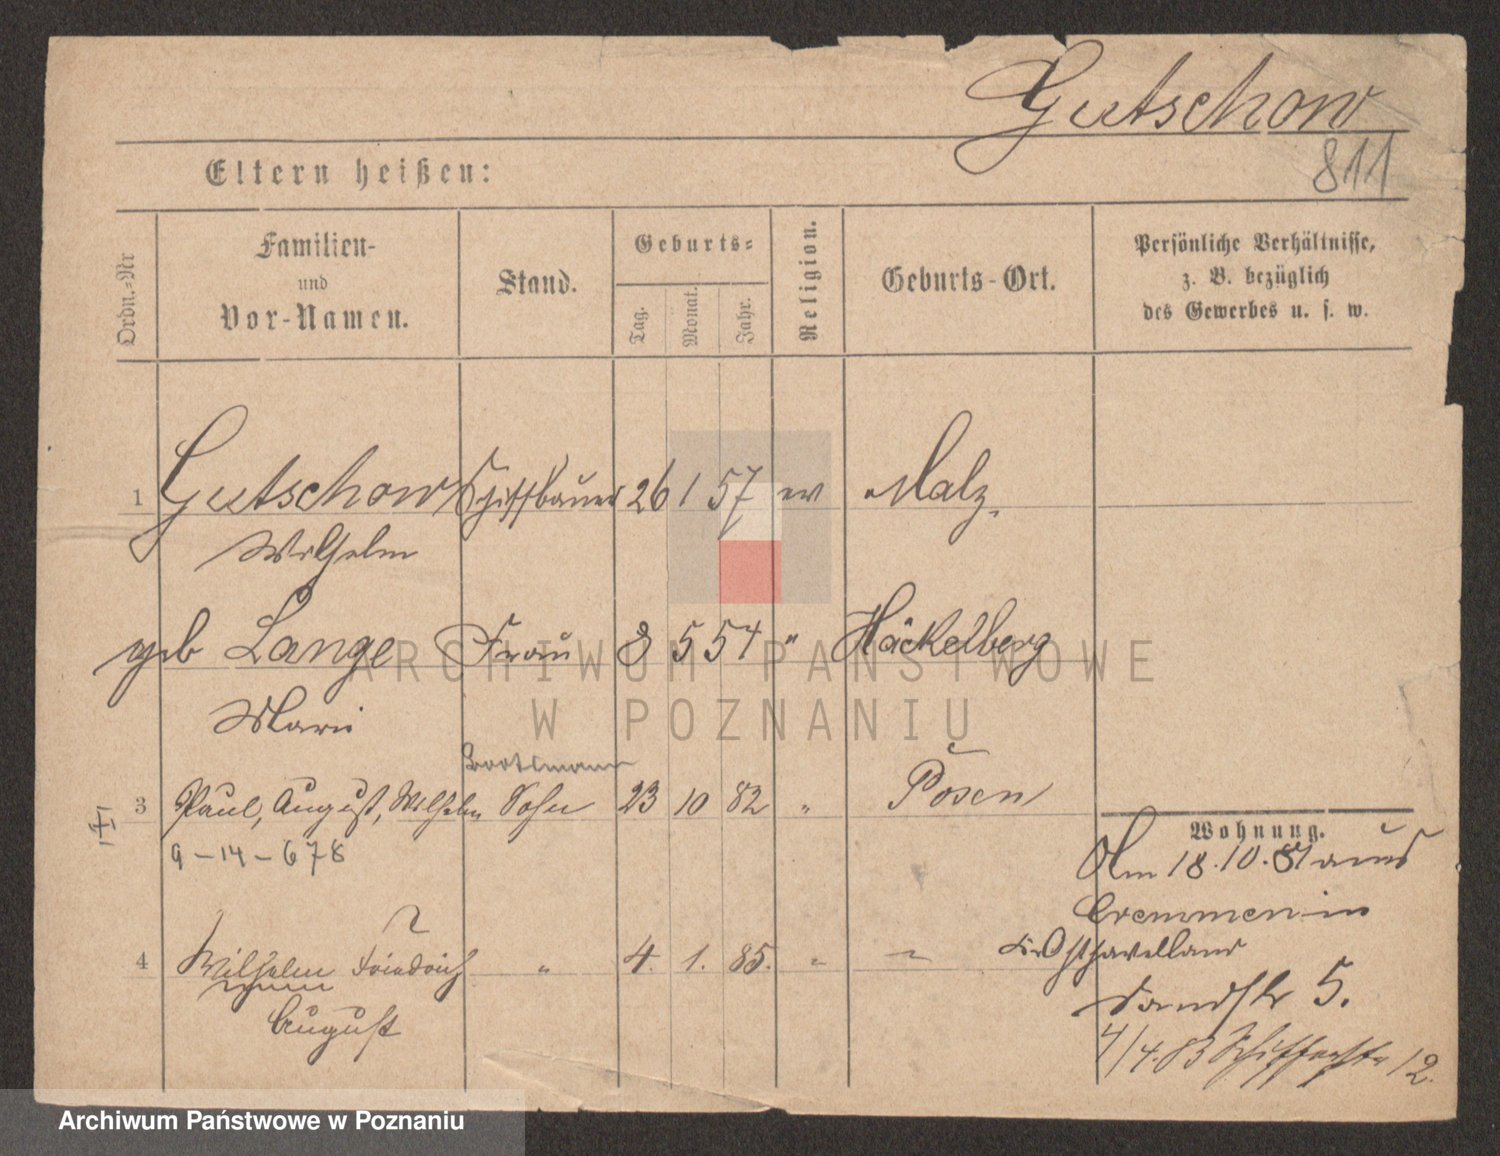 Gutschow
811
Eltern heißen:
Ordn.-Nr
Familien-
und
Vor-Namen.
Stand.
Geburts-
Tag.
Monat.
Jahr.
Religion.
Geburts-Ort.
Persönliche Verhältnisse,
z. B. bezüglich
des Gewerbes u. s. w.
1 Gutschow Schiffbauer 26 1 57 ev Malz.
Wilhelm
geb Lange Frau 8 5 54 " Häckelberg
Marie
Bootsmann
3 Paul, August, Wilhelm Sohn 23 10 82 " Posen
9-14-678
Wohnung.
Am 18.10.81 aus
Cremmen in
Osthavelland
Sandstr 5.
4/4.83 Schifferstr 12.
4 Wilhelm Friedrich " 4. 1. 85. " "
August
ARCHIWUM PAŃSTWOWE
W POZNANIU
Archiwum Państwowe w Poznaniu